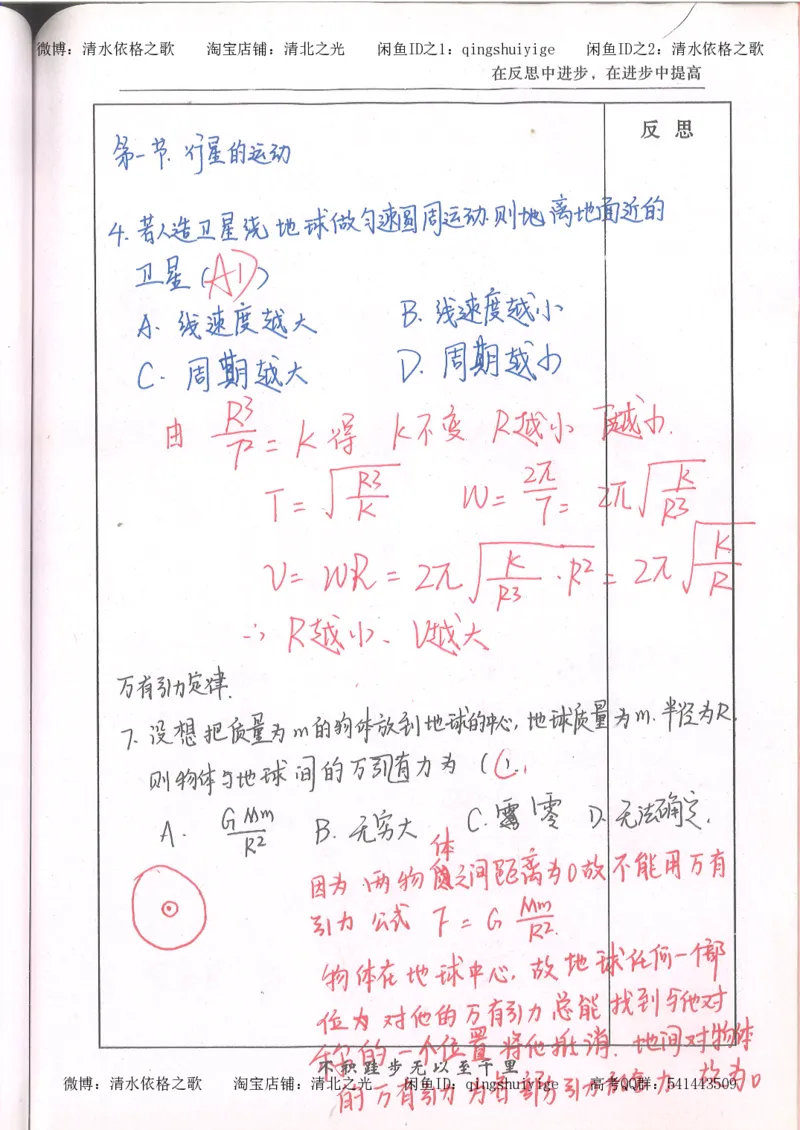 微博：清水依格之歌 淘宝店铺：清北之光 闲鱼ID之1：qingshuiyige 闲鱼ID之2：清水依格之歌
在反思中进步，在进步中提高
反 思
第一节. 行星的运动
4. 若人造卫星绕地球做匀速圆周运动.则地离地面近的
卫星（AD）
A. 线速度越大 B. 线速度越小
C. 周期越大 D. 周期越小
由 R³/T² = K 得 K不变 R越小 T越小.
T = √(R³/K) W = 2π/T = 2π√(K/R³)
V = WR = 2π√(K/R³ · R²) = 2π√(K/R)
∴ R越小、V越大
万有引力定律.
7. 设想把质量为m的物体放到地球的中心，地球质量为m.半径为R.
则物体与地球间的万引有力为（C）.
A. GMm/R² B. 无穷大 C. 零 D. 无法确定.
因为两物体之间距离为0故不能用万有
引力公式 F = G Mm/R².
物体在地球中心，故地球任何一个部
位为对他的万有引力总能找到与他对
称的一个位置将他抵消.地间对物体
不积跬步无以至千里
的万有引力为各部分引力 故为0
微博：清水依格之歌 淘宝店铺：清北之光 闲鱼ID：qingshuiyige 高考QQ群：541443509